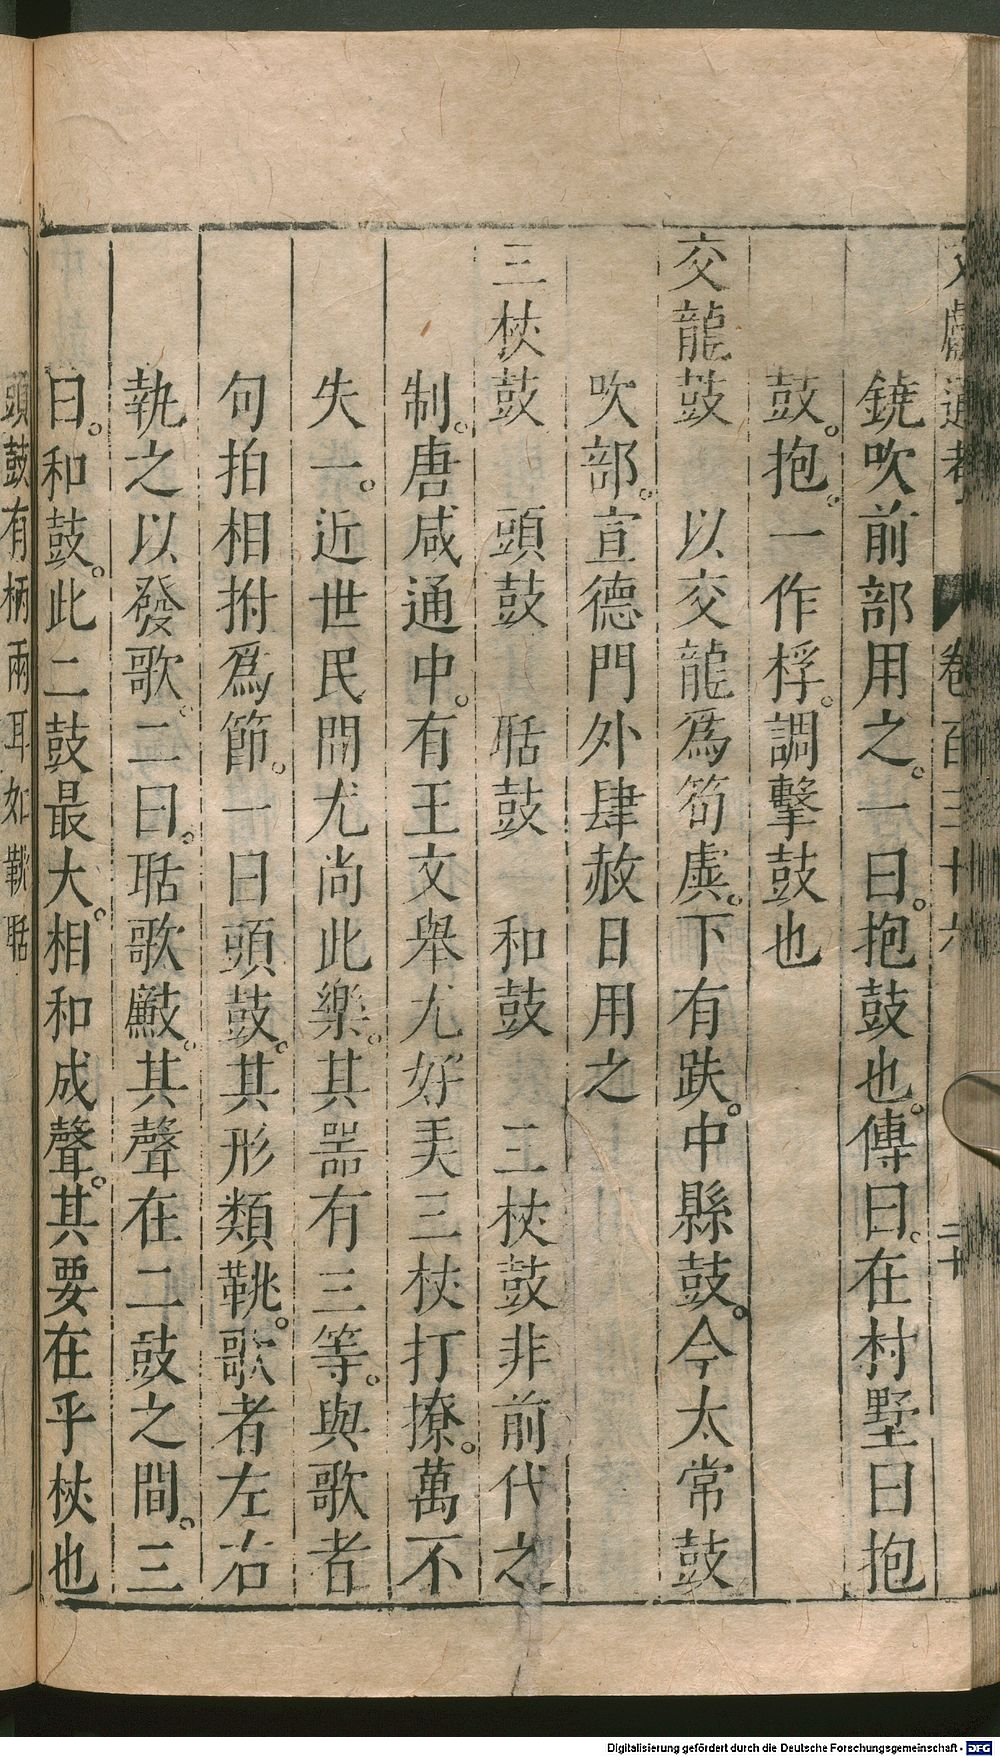 文獻通考 卷百三十六 二十
鐃吹前部用之。一曰。抱鼓也。傳曰。在村墅曰抱
鼓。抱。一作桴。調擊鼓也
交龍鼓 以交龍爲筍虡。下有趺。中縣鼓。今太常鼓
吹部。宣德門外肆赦日用之
三杖鼓 頭鼓 聒鼓 和鼓 三杖鼓非前代之
制。唐咸通中。有王文舉尤好弄三杖打撩。萬不
失一。近世民間尤尚此樂。其器有三等。與歌者
句拍相拊爲節。一曰頭鼓。其形類鞉。歌者左右
執之以發歌。二曰。聒歌鼓。其聲在二鼓之間。三
曰。和鼓。此二鼓最大。相和成聲。其要在乎杖也
頭鼓有柄兩耳如鞉聒
Digitalisierung gefördert durch die Deutsche Forschungsgemeinschaft - DFG